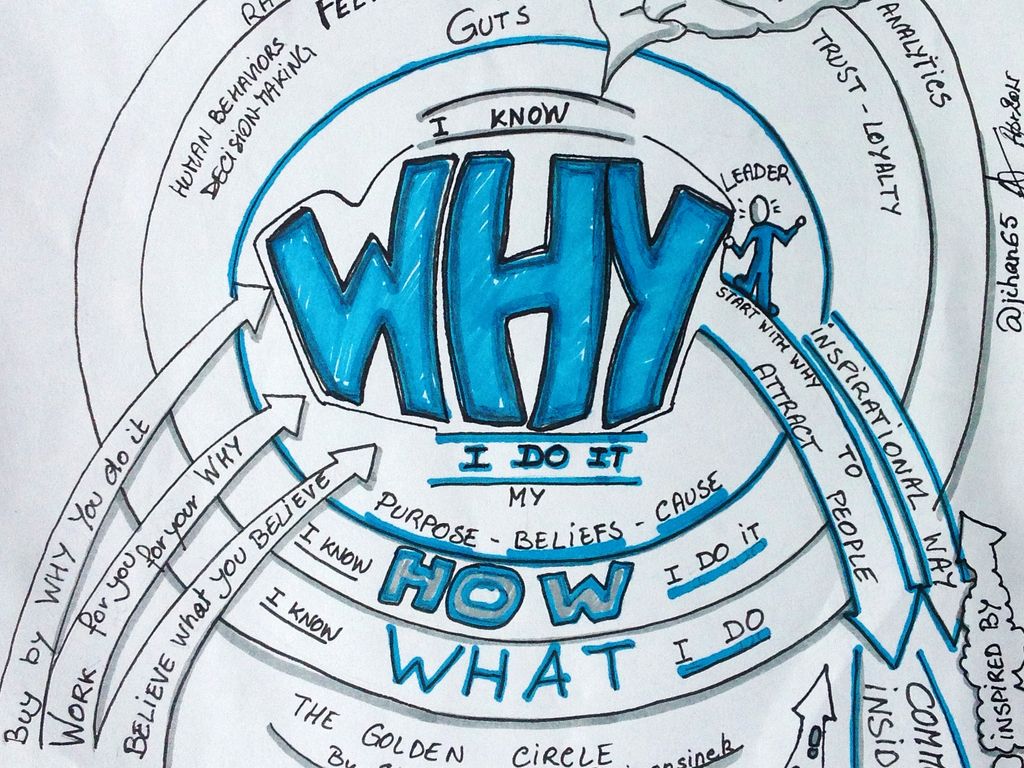 GUTS
HUMAN BEHAVIORS
DECISION-MAKING
TRUST - LOYALTY
ANALYTICS
@jihan65
I KNOW
WHY
LEADER
I DO IT
MY
PURPOSE - BELIEFS - CAUSE
I KNOW
HOW
I DO IT
I KNOW
WHAT
I DO
THE GOLDEN CIRCLE
By
Buy by WHY You do it
WORK for you for your WHY
BELIEVE what you BELIEVE
START WITH WHY
ATTRACT TO PEOPLE
INSPIRATIONAL WAY
INSPIRED BY